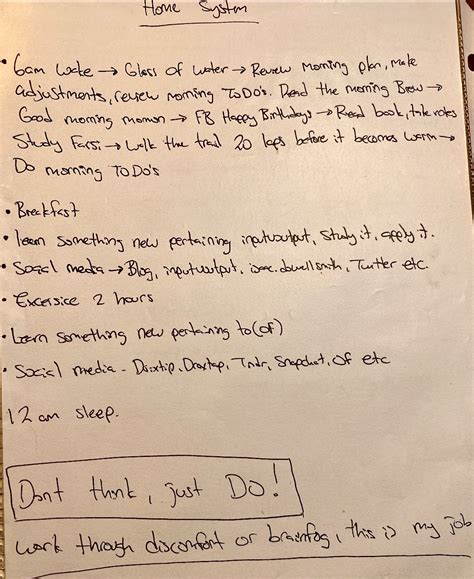 Home System
• 6am Wake → Glass of water → Review morning plan, make
adjustments, review morning ToDo's. Read the morning Brew →
Good morning momon → FB Happy Birthdays → Read book, take notes
Study Farsi → Walk the trail 20 laps before it becomes warm →
Do morning TODO's
• Breakfast
• learn something new pertaining inputwoutput, study it, apply it.
• Social media → Blog, inputwoutput, isaac.dowellsmith, Twitter etc.
• Excersice 2 hours
• Learn something new pertaining to (of)
• Social media - Tndr, Snapchat, OF etc
12 am sleep.
Dont think, just DO!
work through discomfort or brainfog, this is my job